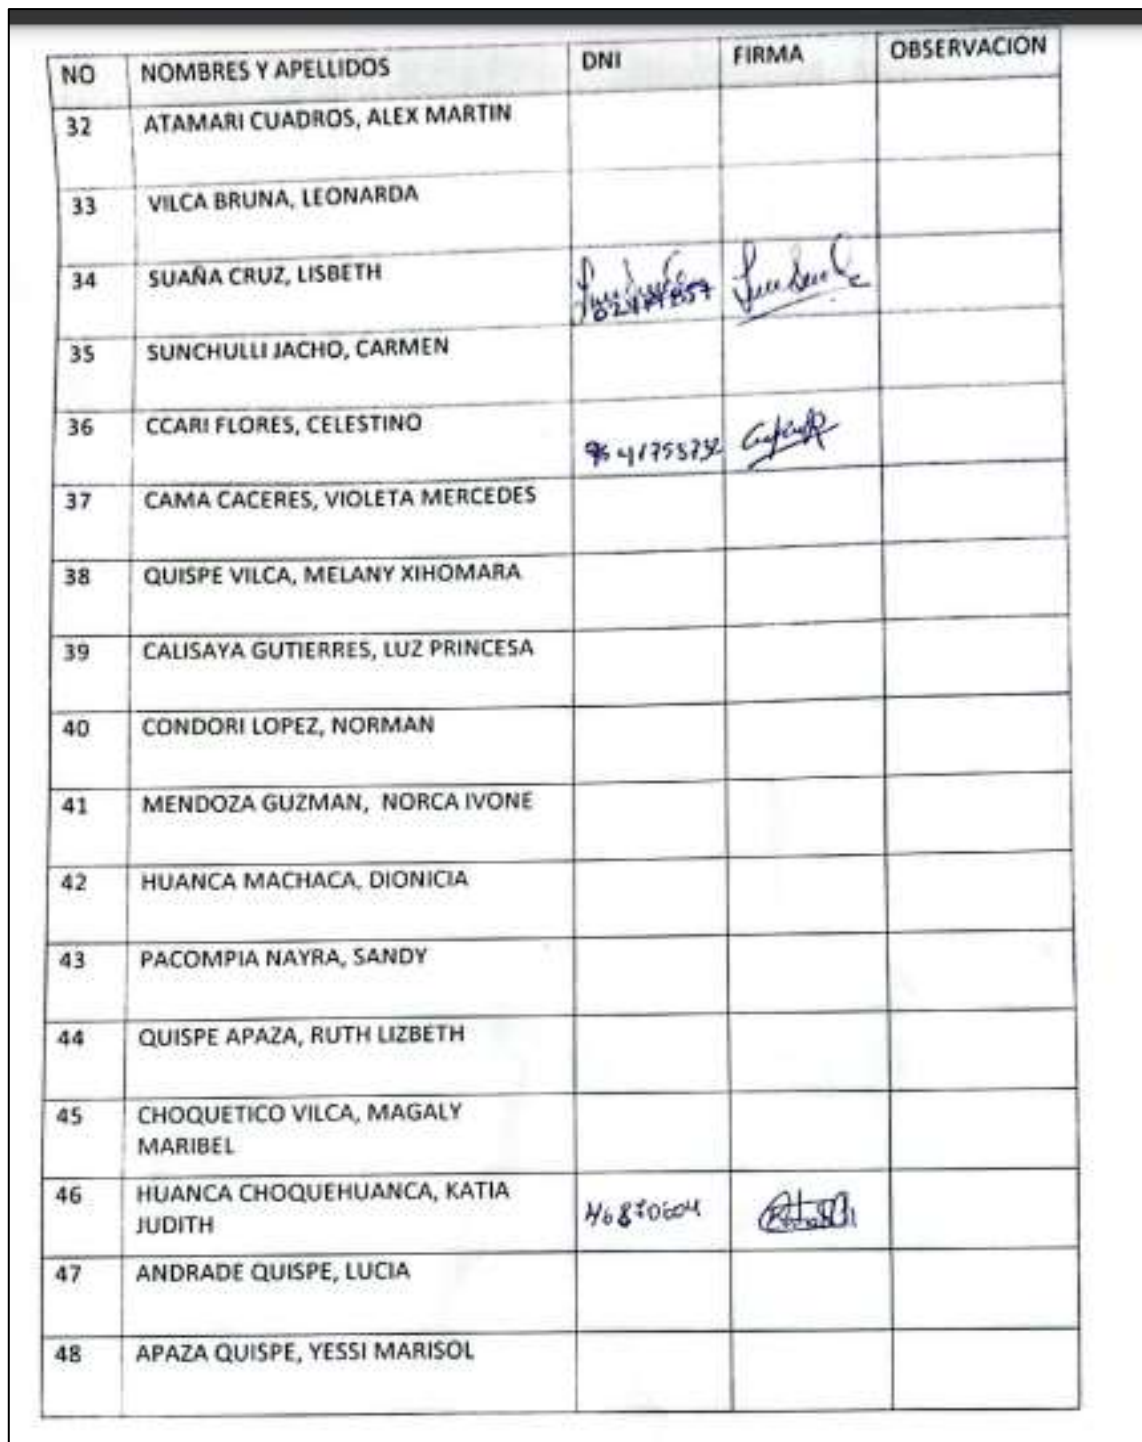 NO NOMBRES Y APELLIDOS DNI FIRMA OBSERVACION
32 ATAMARI CUADROS, ALEX MARTIN
33 VILCA BRUNA, LEONARDA
34 SUAÑA CRUZ, LISBETH
35 SUNCHULLI JACHO, CARMEN
36 CCARI FLORES, CELESTINO
37 CAMA CACERES, VIOLETA MERCEDES
38 QUISPE VILCA, MELANY XIHOMARA
39 CALISAYA GUTIERRES, LUZ PRINCESA
40 CONDORI LOPEZ, NORMAN
41 MENDOZA GUZMAN, NORCA IVONE
42 HUANCA MACHACA, DIONICIA
43 PACOMPIA NAYRA, SANDY
44 QUISPE APAZA, RUTH LIZBETH
45 CHOQUETICO VILCA, MAGALY
MARIBEL
46 HUANCA CHOQUEHUANCA, KATIA
JUDITH 46870604
47 ANDRADE QUISPE, LUCIA
48 APAZA QUISPE, YESSI MARISOL